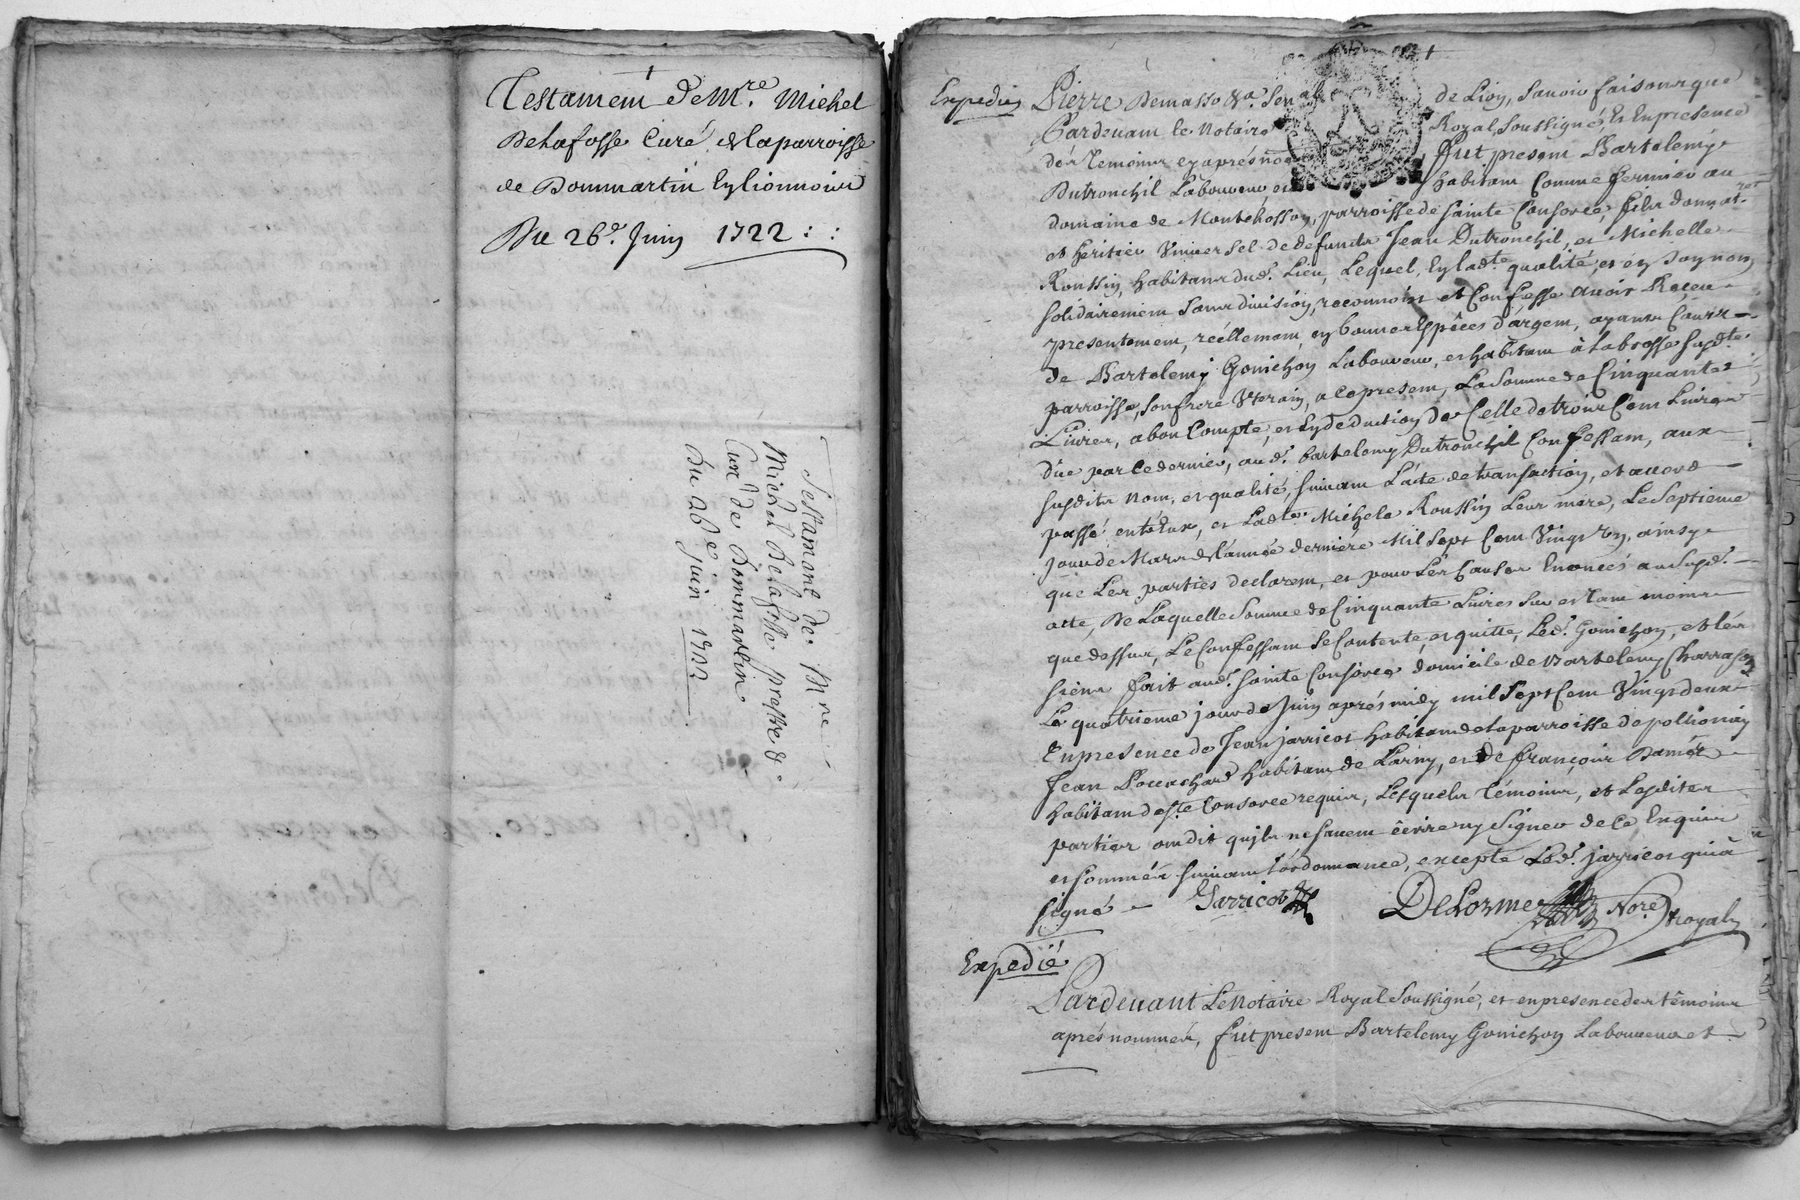 Testament de Mre. Michel
Delafosse Curé de la parroisse
de Dommartin en lionnois
Du 26e. Juin 1722
Testament de Mre
Michel Delafosse prestre &
Curé de Dommartin
Du 26e Juin 1722
Expedié
Pierre Demasso de Lion, Savoir faisons que
Pardevant le Notaire Royal Soussigné, et En presence
dés temoins cy aprés fut present Bartelemÿ
Dutronchil Laboureur, habitant Comme fermier au
domaine de Montchosson, parroisse de Sainte Consorce, fils donnat.re
et heritier Vniversel de defunts Jean Dutronchil, et Michelle
Roussin, habitans dud. Lieu, Lequel, En ladte. qualité, et en son nom
solidairement sans division, reconnoist et Confesse avoir Reçeu
presentement, réellement, en bonnes Espêces d'argent, ayants Cours
de Bartelemy Gonichon Laboureur, et habitant à Labrosse susdte.
parroisse, son frere Vterin, a ce present, La Somme de Cinquante
Livres, a bon Compte, et En déduction de Celle de trois Cent Livres
dûe par Ce dernier, aud. Bartelemy Dutronchil Confessant, aux
susdits nom, et qualité, suivant L'acte de transaction, et accord
passé entr'eux, et Ladte. Michele Roussin Leur mere, Le Septieme
Jour de Mars de l'année derniere Mil Sept Cent Vingt Vn, ainsy
que Les parties declarent, et pour Les Causes Enoncés au Susd.
acte, De Laquelle Somme de Cinquante Livres Sur et tant moins
que dessus, Le Confessant Se Contente, et quitte, Led. Gonichon, et les
siens fait aud. Sainte Consorce domicile de Bartelemy Charrason
Le quatrieme jour de Juin aprés midy mil Sept Cent Vingt deux
En presence de Jean Jarricot habitant de la parroisse de pollionnay
Jean habitant de Larny, et de françois
habitant de Ste Consorce requis, Lesquels témoins, et Lesdites
parties ont dit qu'ils ne savent êcrire ny Signer de Ce Enquis
et sommés suivant l'ordonnance, excepté Led. jarricot qui a
signé
Jarricot
DeLorme Nore. royal
Expedié
Pardevant Le Notaire Royal Soussigné, et en presence des têmoins
aprés nommés, fut present Bartelemy Gonichon Laboureur et